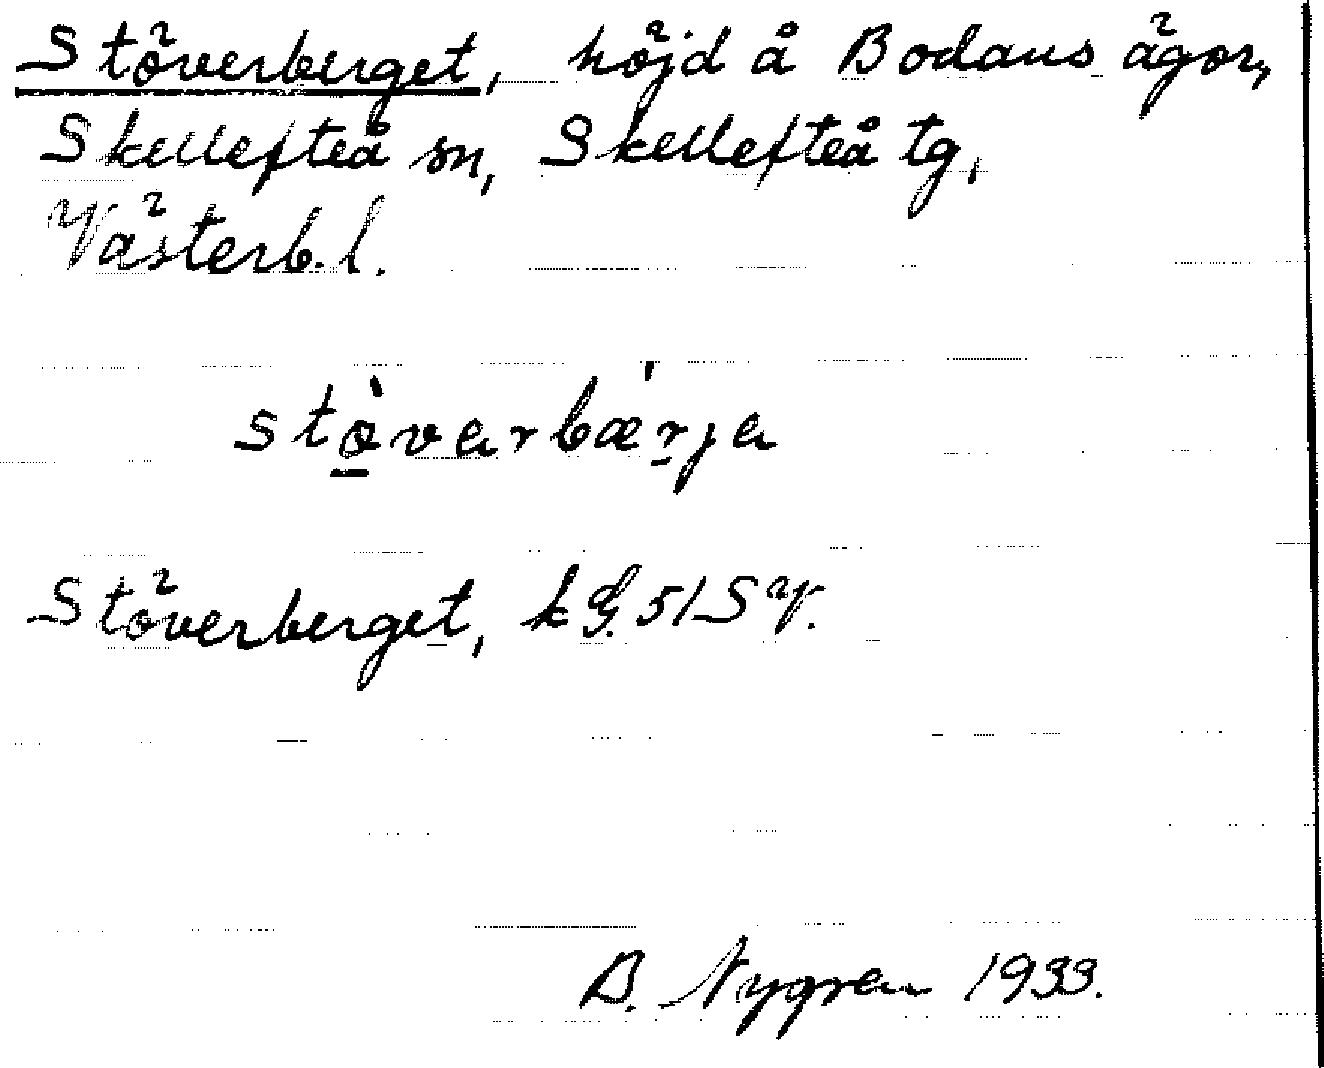 Stöverberget, höjd å Bodans ägor,
Skellefteå sn, Skellefteå tg,
Västerb. l.
stø̠̀varbæ̀r̠ja
Stöverberget, k G. 51 S V.
B. Nygren 1933.